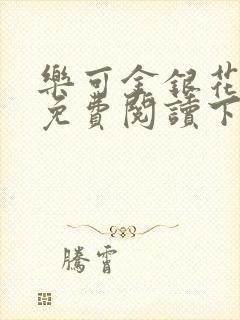 樂可金銀花
免費閱讀下
騰霄